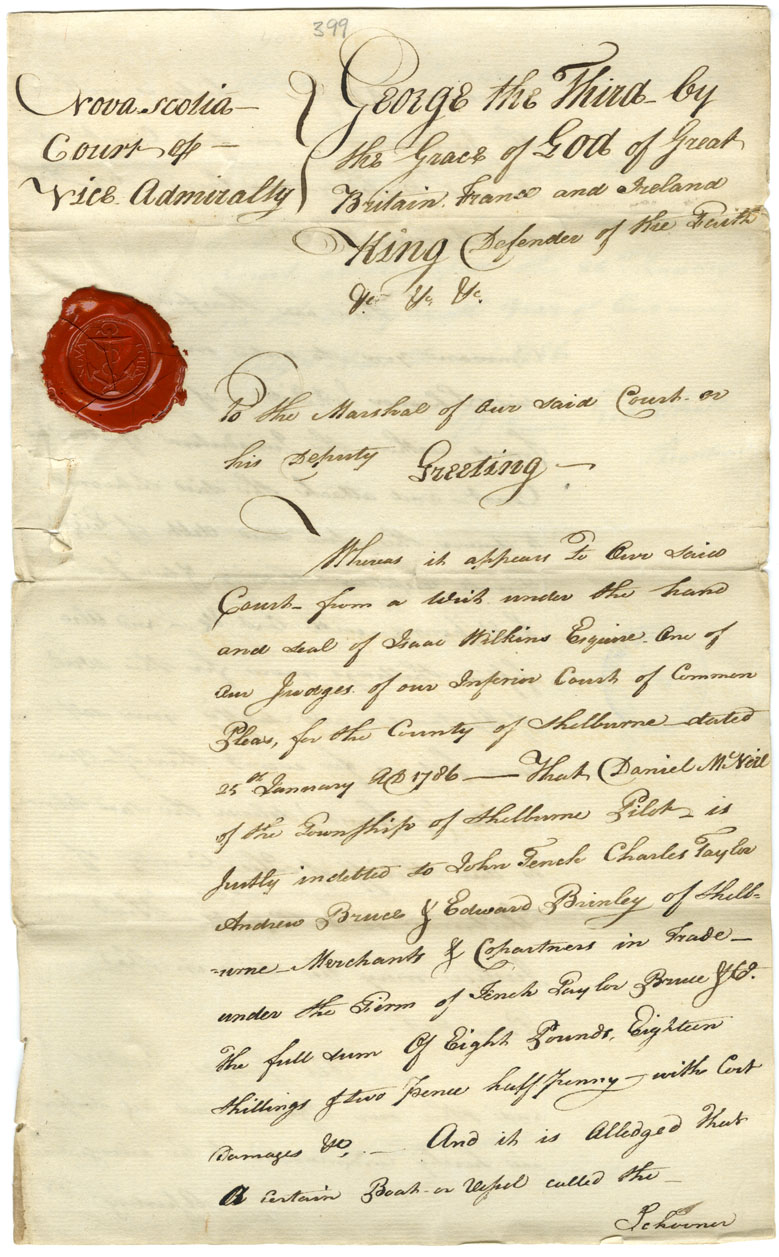 399
Nova Scotia
Court of
Vice Admiralty
George the Third by
the Grace of God of Great
Britain, France and Ireland
King Defender of the Faith
&c. &c. &c.
To the Marshal of our said Court or
his Deputy Greeting
Whereas it appears To Our said
Court from a Writ under the hand
and seal of Isaac Wilkins Esquire One of
our Judges of our Inferior Court of Common
Pleas, for the County of Shelburne dated
25th January AD 1786 — That Daniel McNeil
of the Township of Shelburne Pilot is
Justly indebted to John Fenck Charles Taylor
Andrew Bruce & Edward Brinley of Shelb-
-urne Merchants & Copartners in Trade
under the Firm of Fenck Taylor Bruce & Co.
the full sum Of Eight Pounds, Eighteen
Shillings & two Pence half Penny with Cost
Damages &c, — And it is Alledged That
A certain Boat or Vessel called the
Schooner